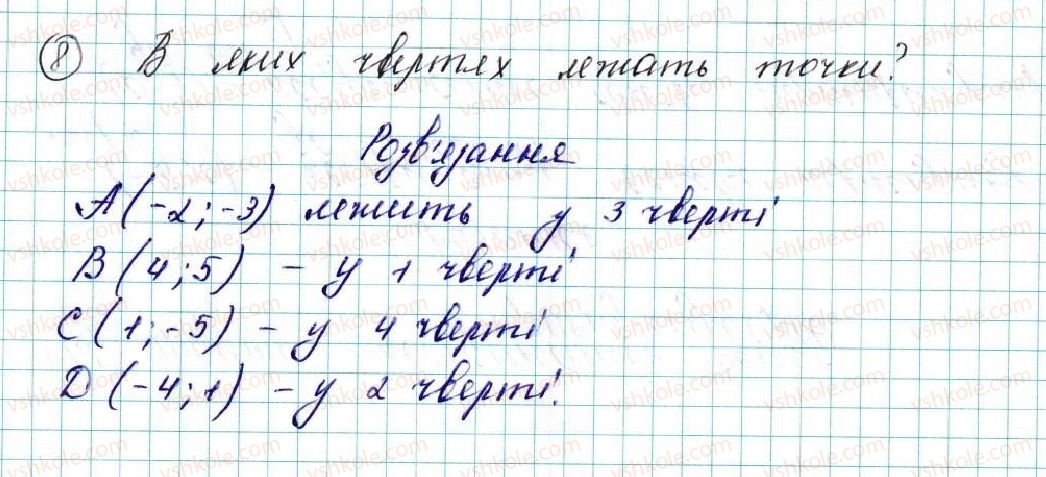 8 В яких чвертях лежать точки?
Розв'язання
А(-2;-3) лежить у 3 чверті
В(4;5) - у 1 чверті
С(1;-5) - у 4 чверті
D(-4;1) - у 2 чверті.